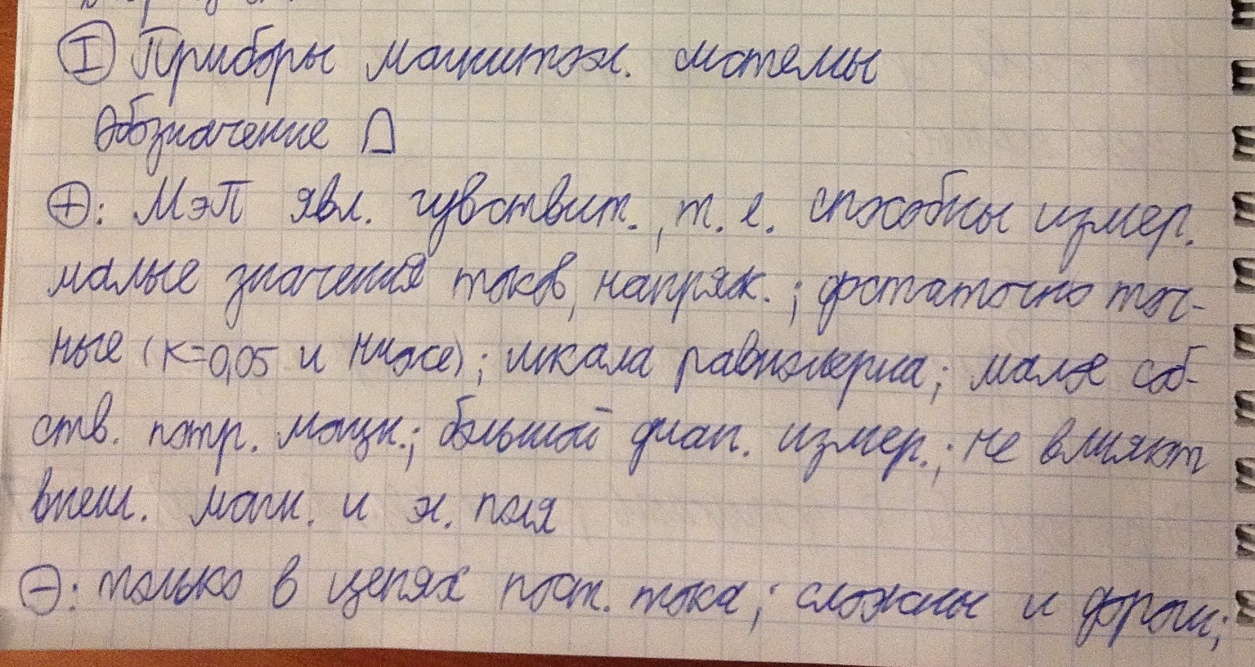 I Приборы магнитоэл. системы
Обозначение
⊕: МэП явл. чувствит., т. е. способны измер.
малые значения токов, напряж.; достаточно точ-
ные (К=0,05 и ниже); шкала равномерна; малое соб-
ств. потр. мощн.; большой диап. измер.; не влияют
внеш. магн. и эл. поля
⊖: только в цепях пост. тока; сложны и дороги;